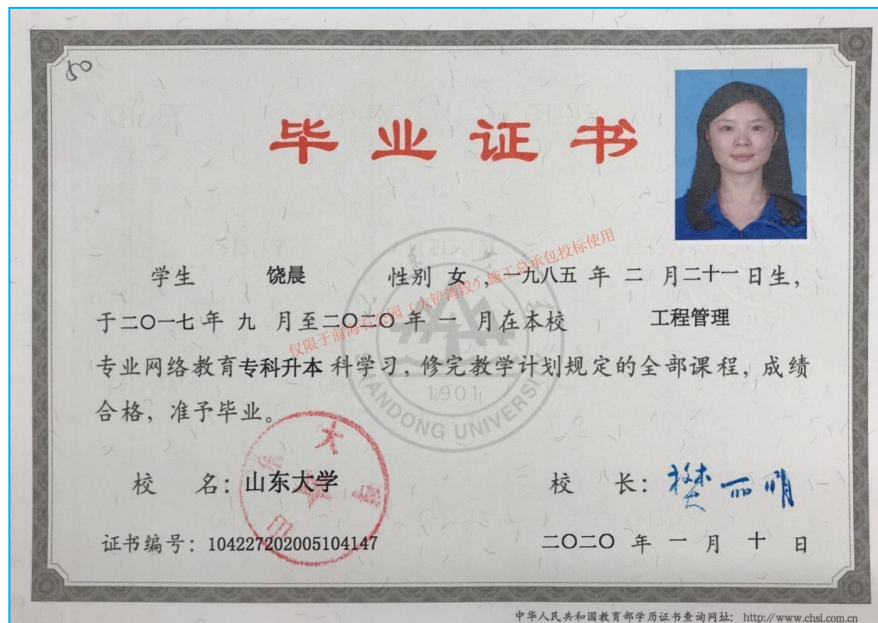 50
毕业证书
学生 饶晨 性别 女 , 一九八五 年 二 月二十一 日生,
于二〇一七 年 九 月至二〇二〇 年 一 月在本校 工程管理
专业网络教育专科升本 科学习, 修完教学计划规定的全部课程, 成绩
合格, 准予毕业。
仅限于前海
投)施工总承包投标使用
1901
SHANDONG UNIVERSITY
校 名: 山东大学
校 长: 樊丽明
证书编号: 104227202005104147
二〇二〇 年 一 月 十 日
中华人民共和国教育部学历证书查询网址: http://www.chsi.com.cn